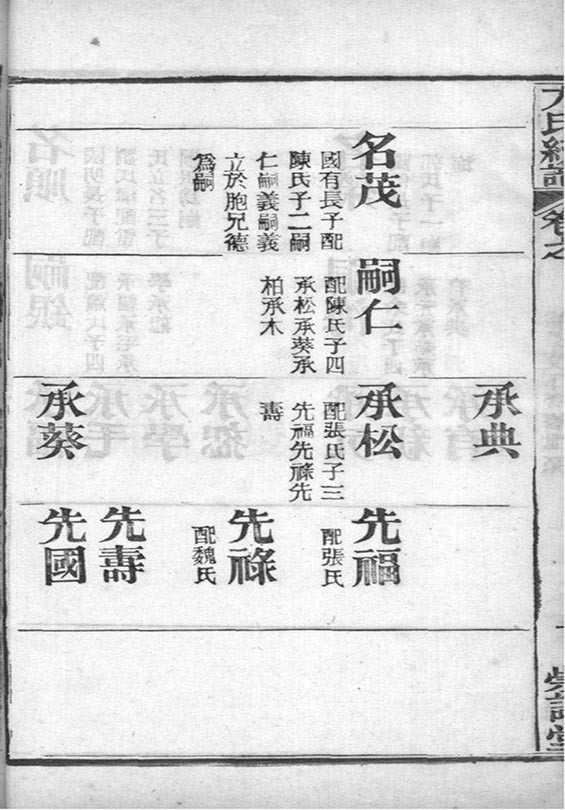 卷之
名茂
國有長子配
陳氏子二嗣
仁嗣義嗣義
立於胞兄德
爲嗣
嗣仁
配陳氏子四
承松承葵承
柏承木
承典
承松
配張氏子三
先福先祿先
壽
承葵
先福
配張氏
先祿
配魏氏
先壽
先國